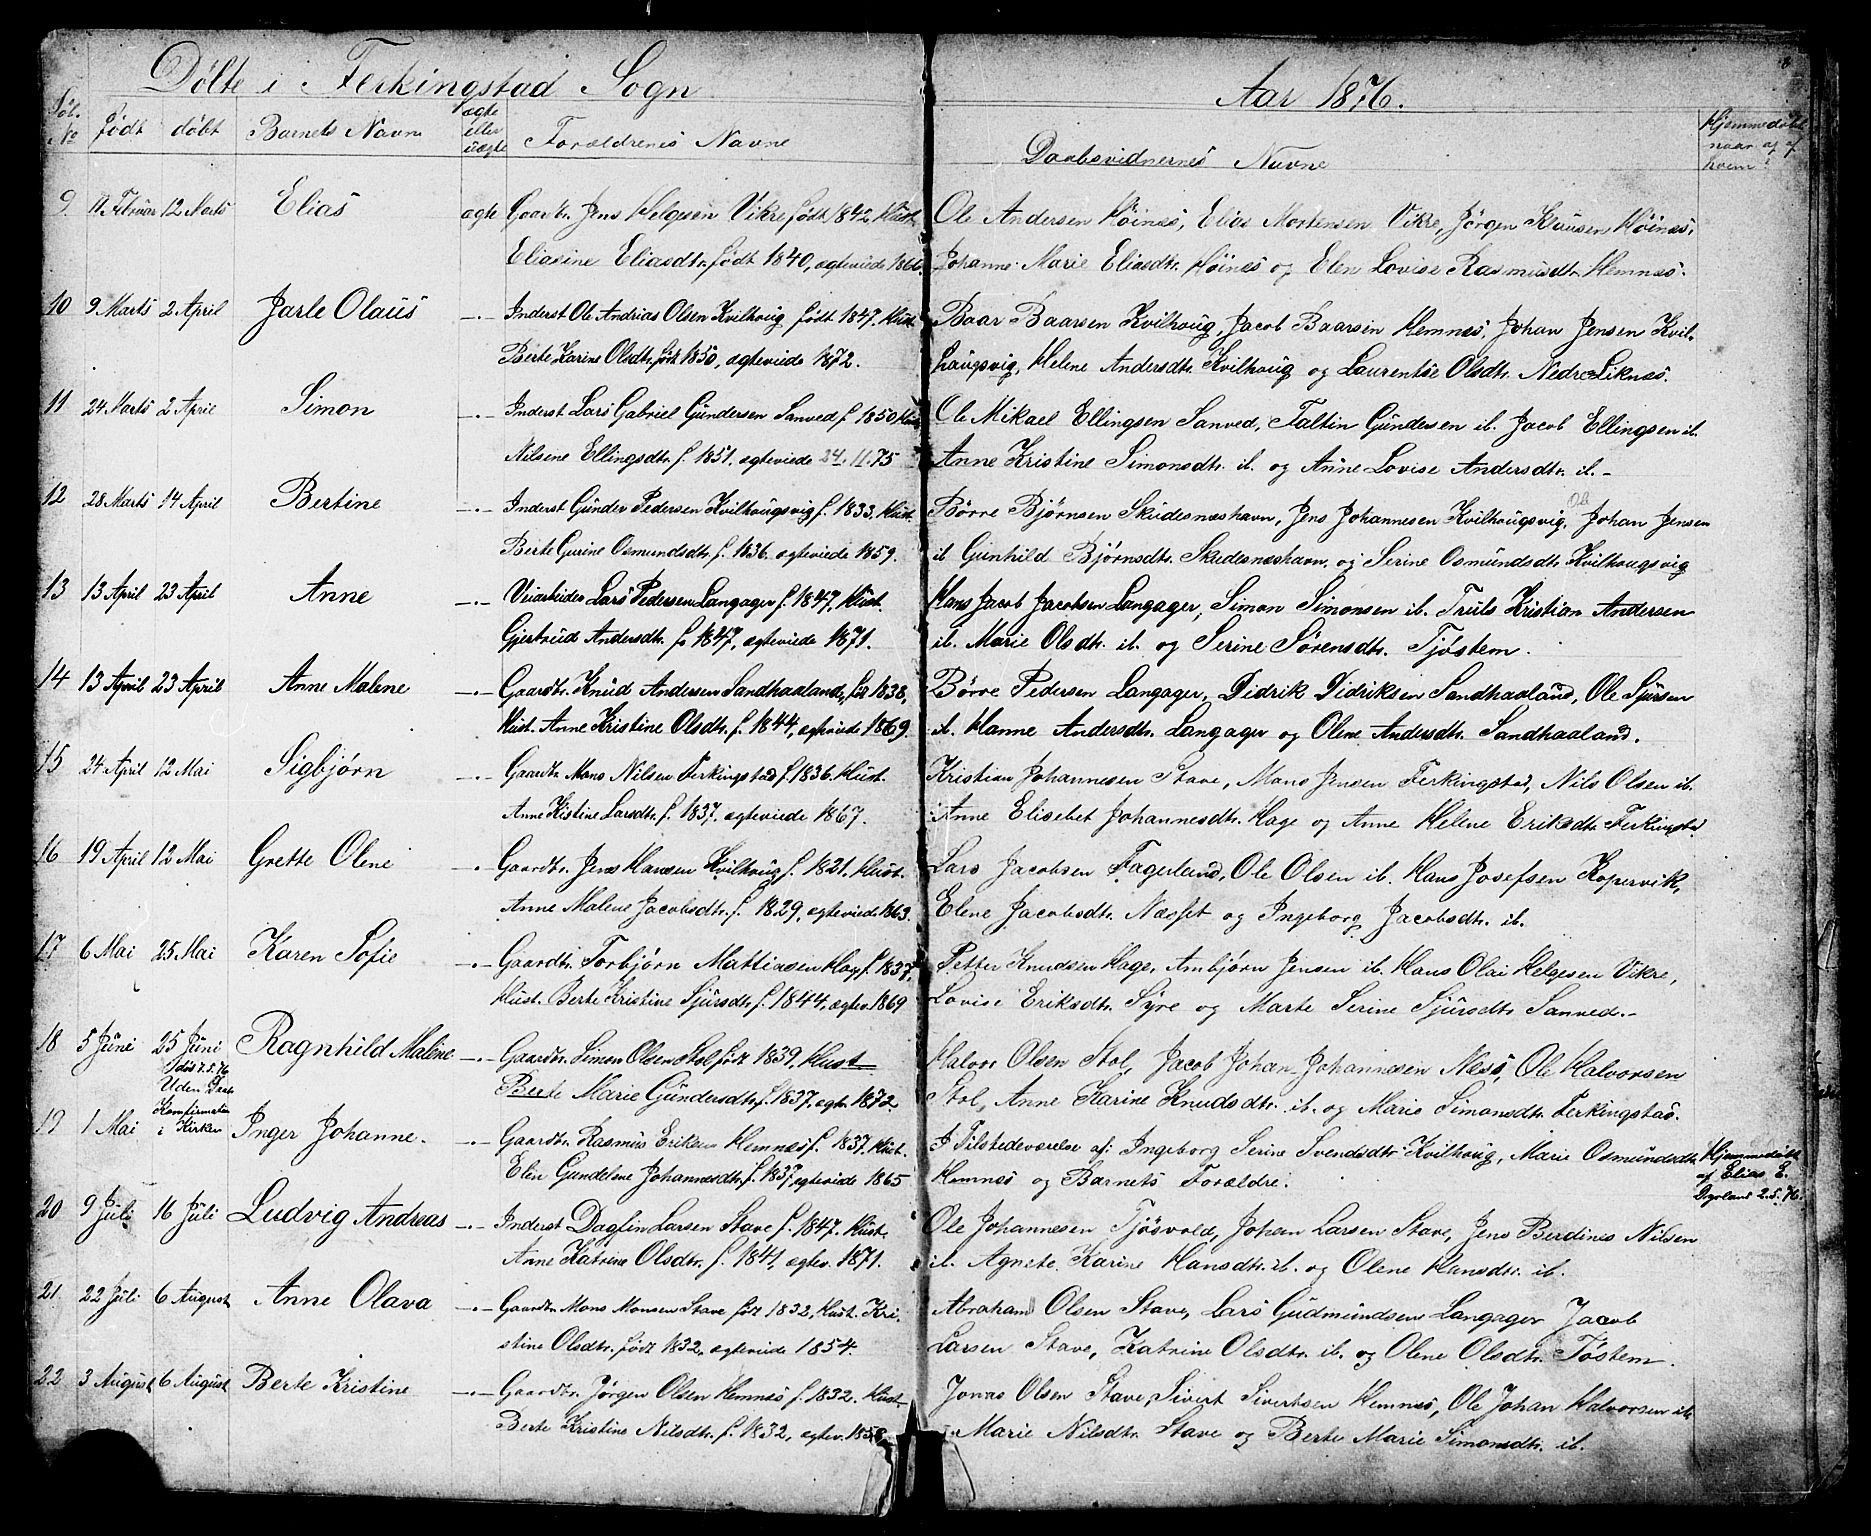 Döbte i Ferkingstad Sogn
Aar 1876.
Löb. № födt döbt Barnets Navn ægte eller uægte Forældrenes Navne
Daabsvidnernes Navne
Hjemmedöbt naar og af hvem?
9. 11 Februar 12 Marts Elias ægte Gaardbr. Jens Helgesen Vikre født 1842, Hust.
Eliasine Eliasdtr. født 1840, ægteviede 1866.
Ole Andersen Höinæs, Elias Mortensen Vikre, Jörgen Klausen Höinæs,
Johanne Marie Eliasdtr. Höinæs og Elen Lovise Rasmusdtr. Hemnæs.
10 9 Marts 2 April Jarle Olaus —.— Inderst Ole Andrias Olsen Kvilhoug født 1847. Hust.
Berte Karine Olsdtr. født 1850, ægteviede 1872.
Baar Baarsen Kvilhoug, Jacob Baarsen Hemnæs, Johan Jensen Kvil-
haugsvig, Helene Andersdtr. Kvilhoug og Laurentse Olsdtr. Nedre Liknæs.
11 24 Marts 2 April Simon —.— Inderst Lars Gabriel Gundersen Sanved f. 1850, Hust.
Nilsene Ellingsdtr. f. 1851. ægteviede 24.11.75
Ole Mikael Ellingsen Sanved, Faltin Gundersen ib. Jacob Ellingsen ib.
Anne Kristine Simonsdtr. ib. og Anne Lovise Andersdtr. ib.-
12 28 Marts 14 April Bertine —.— Inderst Gunder Pedersen Kvilhougsvig f. 1833. Hust.
Berte Gurine Osmundsdtr. f. 1836. ægteviede 1859.
Börre Bjørnsen Skudesnæshavn, Jens Johannesen Kvilhougsvig, Ole Johan Jensen
ib Gunhild Bjørnsdtr. Skudesnæshavn, og Serine Osmundsdtr. Kvilhougsvig
13 13 April 23 April Anne —.— Veiarbeider Lars Pedersen Langager f. 1847. Hust.
Gjertrud Andersdtr. f. 1847, ægteviede 1871.
Hans Jacob Jacobsen Langager, Simon Simonsen ib. Truls Kristian Andersen
ib. Marie Olsdtr. ib. og Serine Sörensdtr. Tjöstem.
14 13 April 23 April Anne Malene —.— Gaardbr. Knud Andersen Sandhaaland, fød 1838,
Hust. Anne Kristine Olsdtr. f. 1844, ægteviede 1869.
Börre Pedersen Langager, Didrik Didriksen Sandhaaland, Ole Sjursen
ib. Hanne Andersdtr. Langager og Olene Andersdtr. Sandhaaland.
15 24 April 12 Mai Sigbjørn —.— Gaardbr. Mons Nilsen Ferkingstad f. 1836. Hust.
Anne Kistine Larsdtr. f. 1837. ægteviede 1867.
Kristian Johannesen Stave, Mons Jensen Ferkingstad, Nils Olsen ib.
Anne Elisebet Johannesdtr. Hage og Anne Helene Eriksdtr. Ferkingstad
16 19 April 12 Mai Grette Olene —.— Gaardbr. Jens Hansen Kvilhoug f. 1821. Hust.
Anne Malene Jacobsdtr. f. 1829, ægteviede 1863.
Lars Jacobsen Fagerland, Ole Olsen ib. Hans Josefsen Kopervik,
Elene Jacobsdtr. Næsset og Ingeborg Jacobsdtr. ib.
17 6 Mai 25 Mai Karen Sofie —.— Gaardbr. Torbjörn Mattiasen Hag f. 1837,
Hust. Berte Kristine Sjursdtr. f. 1844, ægtev. 1869
Petter Knudsen Hage, Ambjörn Jensen ib. Hans Olai Helgesen Vikre,
Lovise Eriksdtr. Syre og Marte Serine Sjursdtr. Sanved.-
18 5 Juni 25 Juni Ragnhild Malene —.— Gaardbr. Simon Olsen Stol født 1839, Hust
Berte Marie Gundersdtr. f. 1837. ægtv. 1872.
Halvor Olsen Stol, Jacob Johan Johannesen Næss, Ole Halvorsen
Stol, Anne Karine Knudsdtr. ib. og Marie Simonsdtr. Ferkingstad.
19 1 Mai död 7.5.76 Uden Daabs Konfirmation i Kirken Inger Johanne. —.— Gaardbr. Rasmus Eriksen Hemnæs f. 1837. Hust.
Elen Gundelene Johannesdtr. f. 1837, ægteviede 1865
I Tilstedeværelse af: Ingeborg Serine Svendsdtr. Kvilhoug, Marie Osmundsdtr.
Hemnæs og Barnets Forældre.
Hjemmedöbt af Elias E. 2.5.76.
20 9 Juli 16 Juli Ludvig Andreas —.— Inderst Dagfin Larsen Stave f. 1847. Hust.
Anne Katrine Olsdtr. f. 1841, ægtev. 1871.
Ole Johannesen Tjösvold, Johan Larsen Stave, Jens Berdines Nilsen
ib. Agnete Karine Hansdtr. ib. og Olene Hansdtr. ib.
21 22 Juli 6 August Anne Olava —.— Gaardbr. Mons Monsen Stave født 1832, Hust. Kri-
stine Olsdtr. født 1832, ægteviede 1854.
Abraham Olsen Stave, Lars Gudmundsen Langager Jacob
Larsen Stave, Katrine Olsdtr. ib. og Olene Olsdtr. Töstem.
22 3 August 6 August Berte Kristine —.— Gaardbr. Jörgen Olsen Hemnæs f. 1832. Hust.
Berte Kristine Nilsdtr. f. 1832, ægtev. 1858
Jonas Olsen Stave, Sivert Sivertsen Hemnæs, Ole Johan Halvorsen ib.
Marie Nilsdtr. Stave og Berte Marie Simonsdtr. ib.